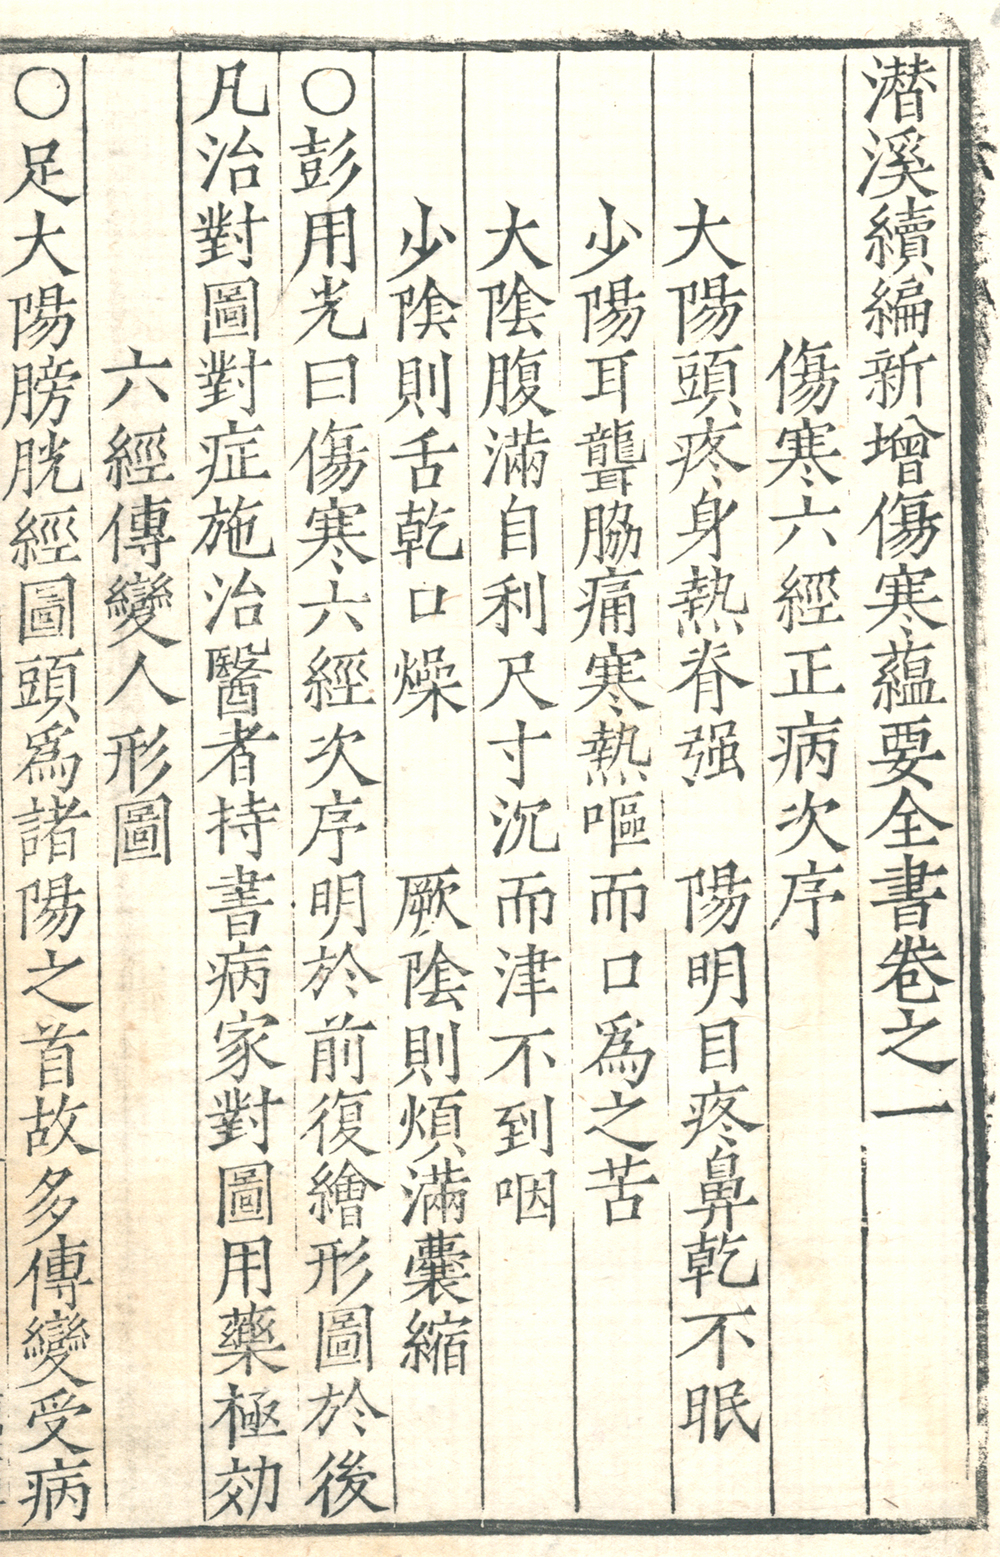 潛溪續編新增傷寒蘊要全書卷之一
傷寒六經正病次序
大陽頭疼身熱脊强　陽明目疼鼻乾不眠
少陽耳聾脇痛寒熱嘔而口爲之苦
大陰腹滿自利尺寸沉而津不到咽
少陰則舌乾口燥　厥陰則煩滿囊縮
○彭用光曰傷寒六經次序明於前復繪形圖於後
凡治對圖對症施治醫者持書病家對圖用藥極効
六經傳變人形圖
○足大陽膀胱經圖頭爲諸陽之首故多傳變受病